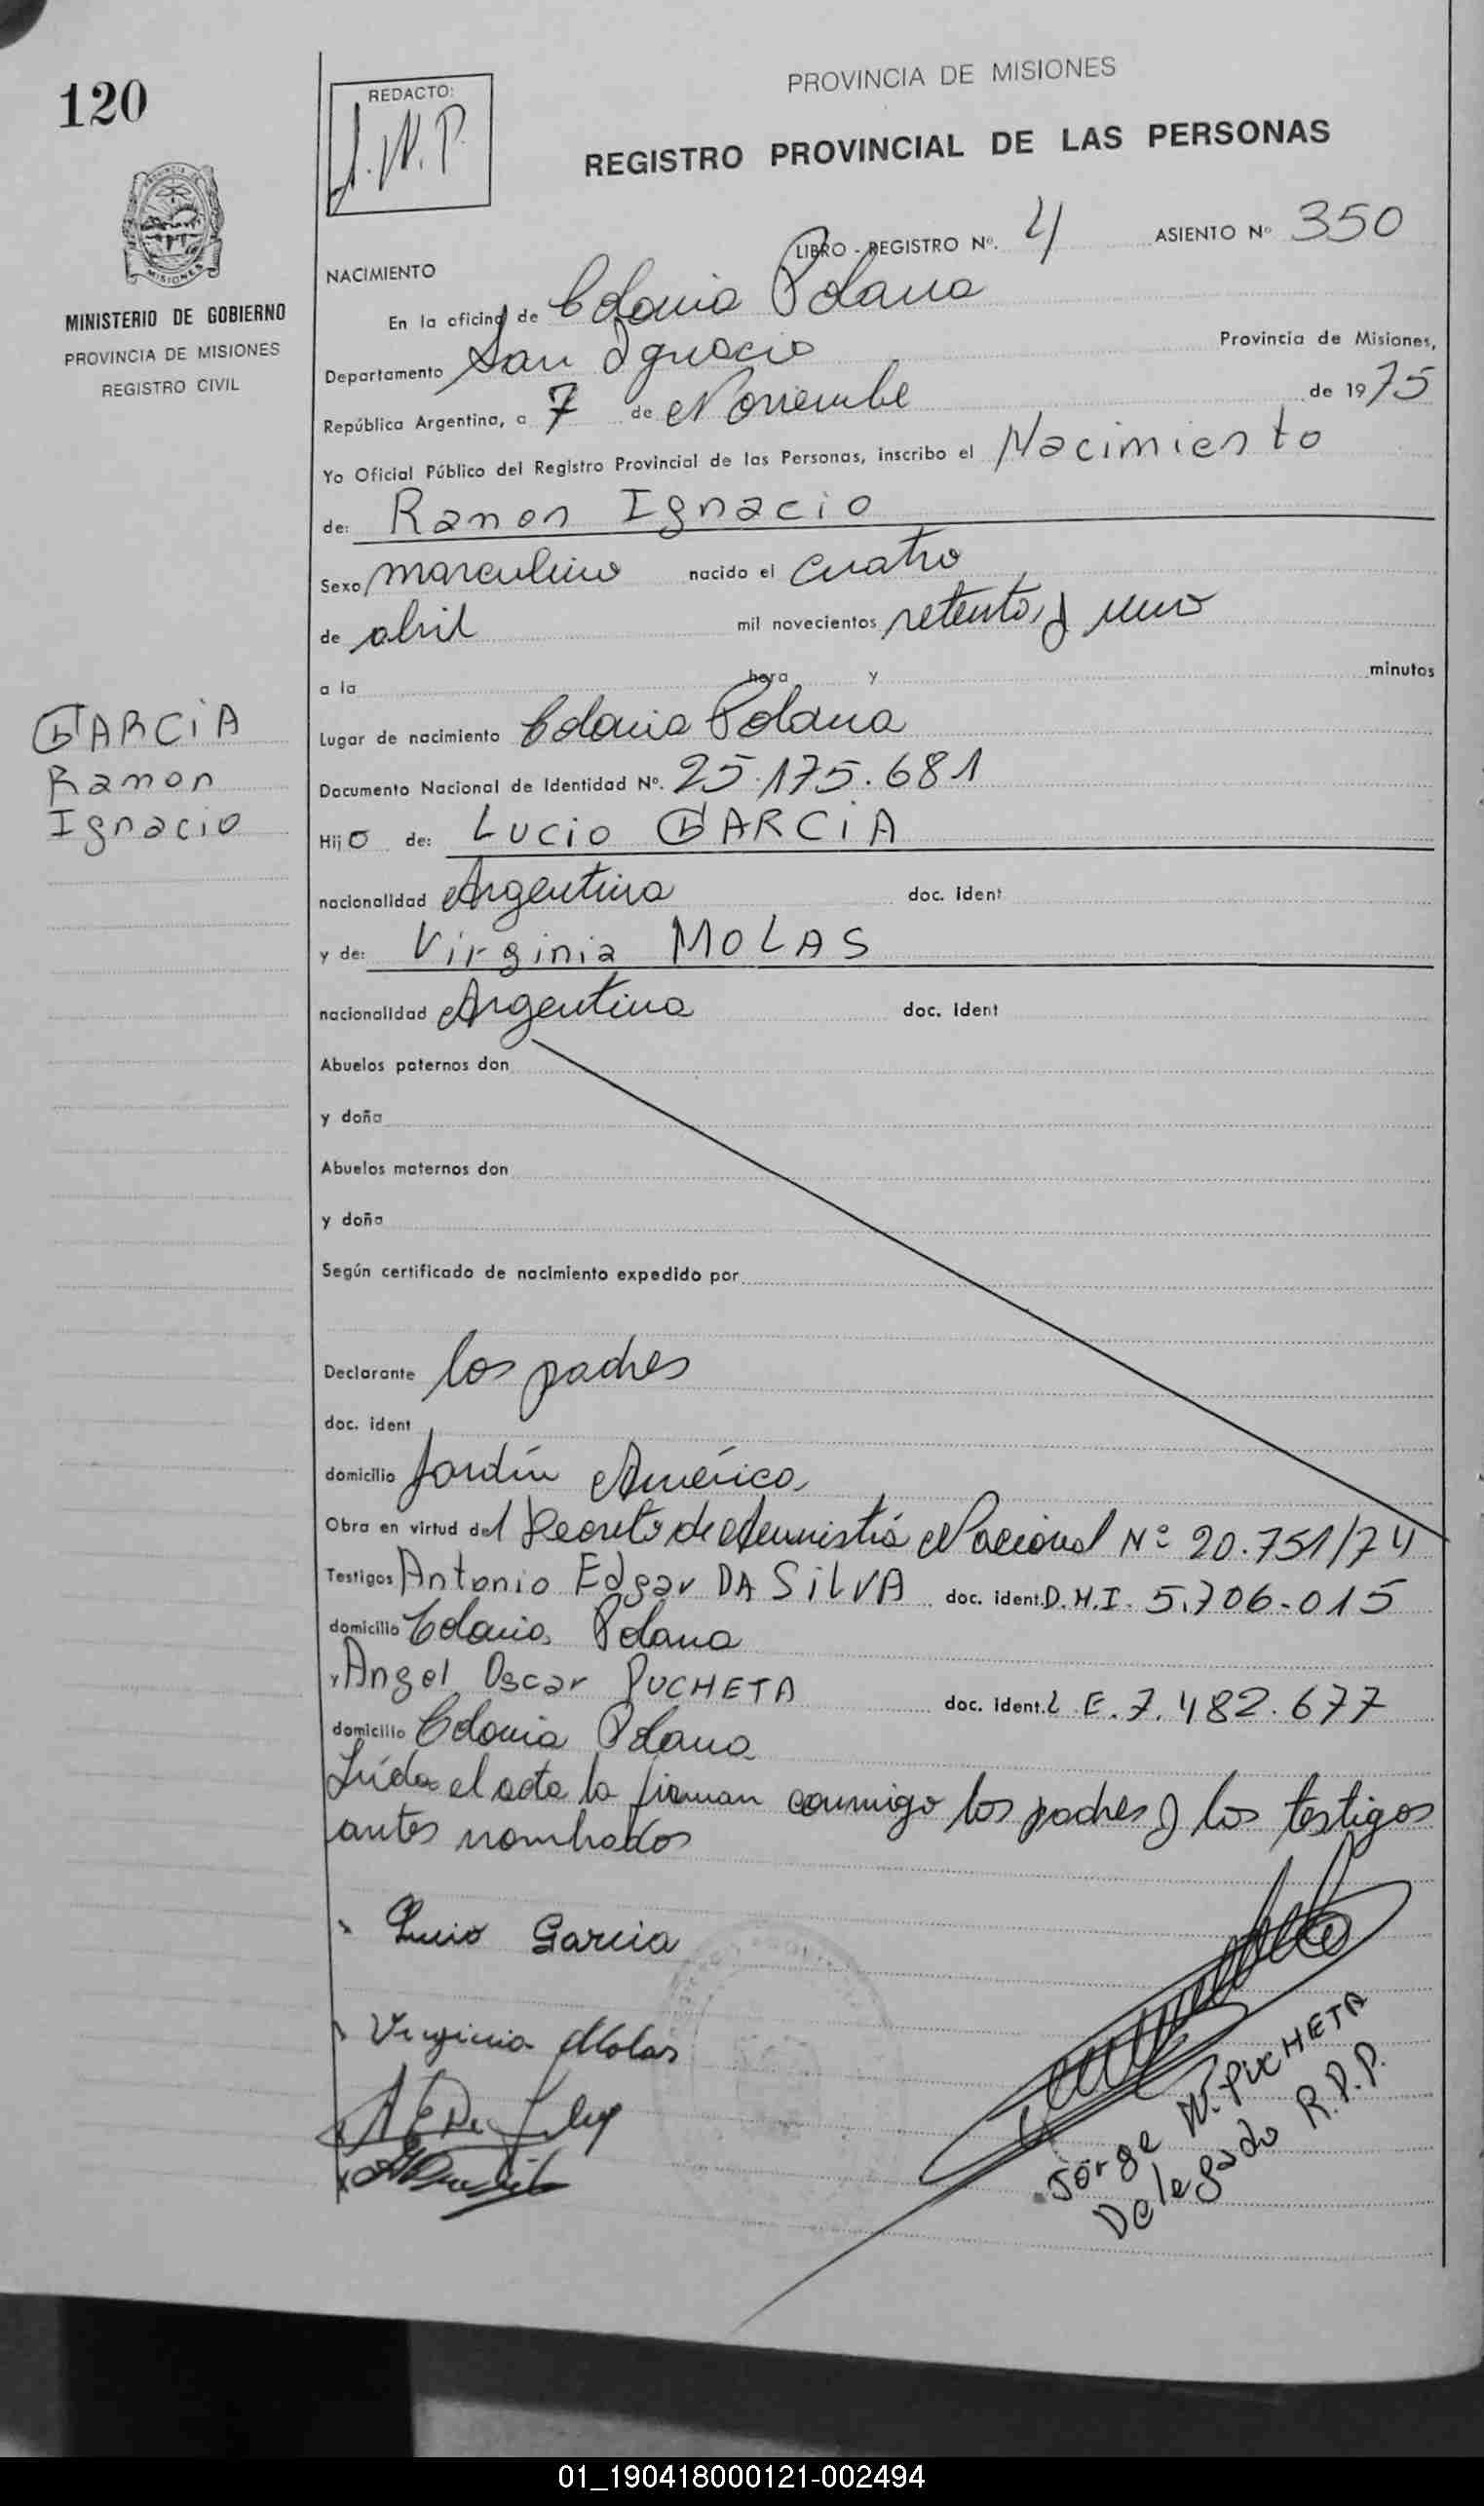 120
REDACTO:
J.N.P.
PROVINCIA DE MISIONES
REGISTRO PROVINCIAL DE LAS PERSONAS
PROVINCIA DE
MISIONES
MINISTERIO DE GOBIERNO
PROVINCIA DE MISIONES
REGISTRO CIVIL
LIBRO - REGISTRO Nº. 4 ASIENTO Nº 350
NACIMIENTO
En la oficina de Colonia Polana
Departamento San Ignacio Provincia de Misiones,
República Argentina, a 7 de Noviembre de 1975
Yo Oficial Público del Registro Provincial de las Personas, inscribo el Nacimiento
de: Ramon Ignacio
Sexo masculino nacido el cuatro
de abril mil novecientos setenta y uno
a la hora y minutos
GARCIA
Ramon
Ignacio
Lugar de nacimiento Colonia Polana
Documento Nacional de Identidad Nº. 25.175.681
Hijo de: Lucio GARCIA
nacionalidad Argentina doc. ident
y de: Virginia MOLAS
nacionalidad Argentina doc. ident
Abuelos paternos don
y doña
Abuelos maternos don
y doña
Según certificado de nacimiento expedido por
Declarante los padres
doc. ident
domicilio Jardín América
Obra en virtud del Decreto de Amnistía Nacional Nº 20.751/74
Testigos Antonio Edgar DA SILVA doc. ident. D.N.I. 5.706.015
domicilio Colonia Polana
y Angel Oscar PUCHETA doc. ident. L.E. 7.482.677
domicilio Colonia Polana
Leída el acta la firman conmigo los padres y los testigos
antes nombrados
Lucio Garcia
Virginia Molas
Jorge N. PUCHETA
Delegado R.P.P.
01_190418000121-002494